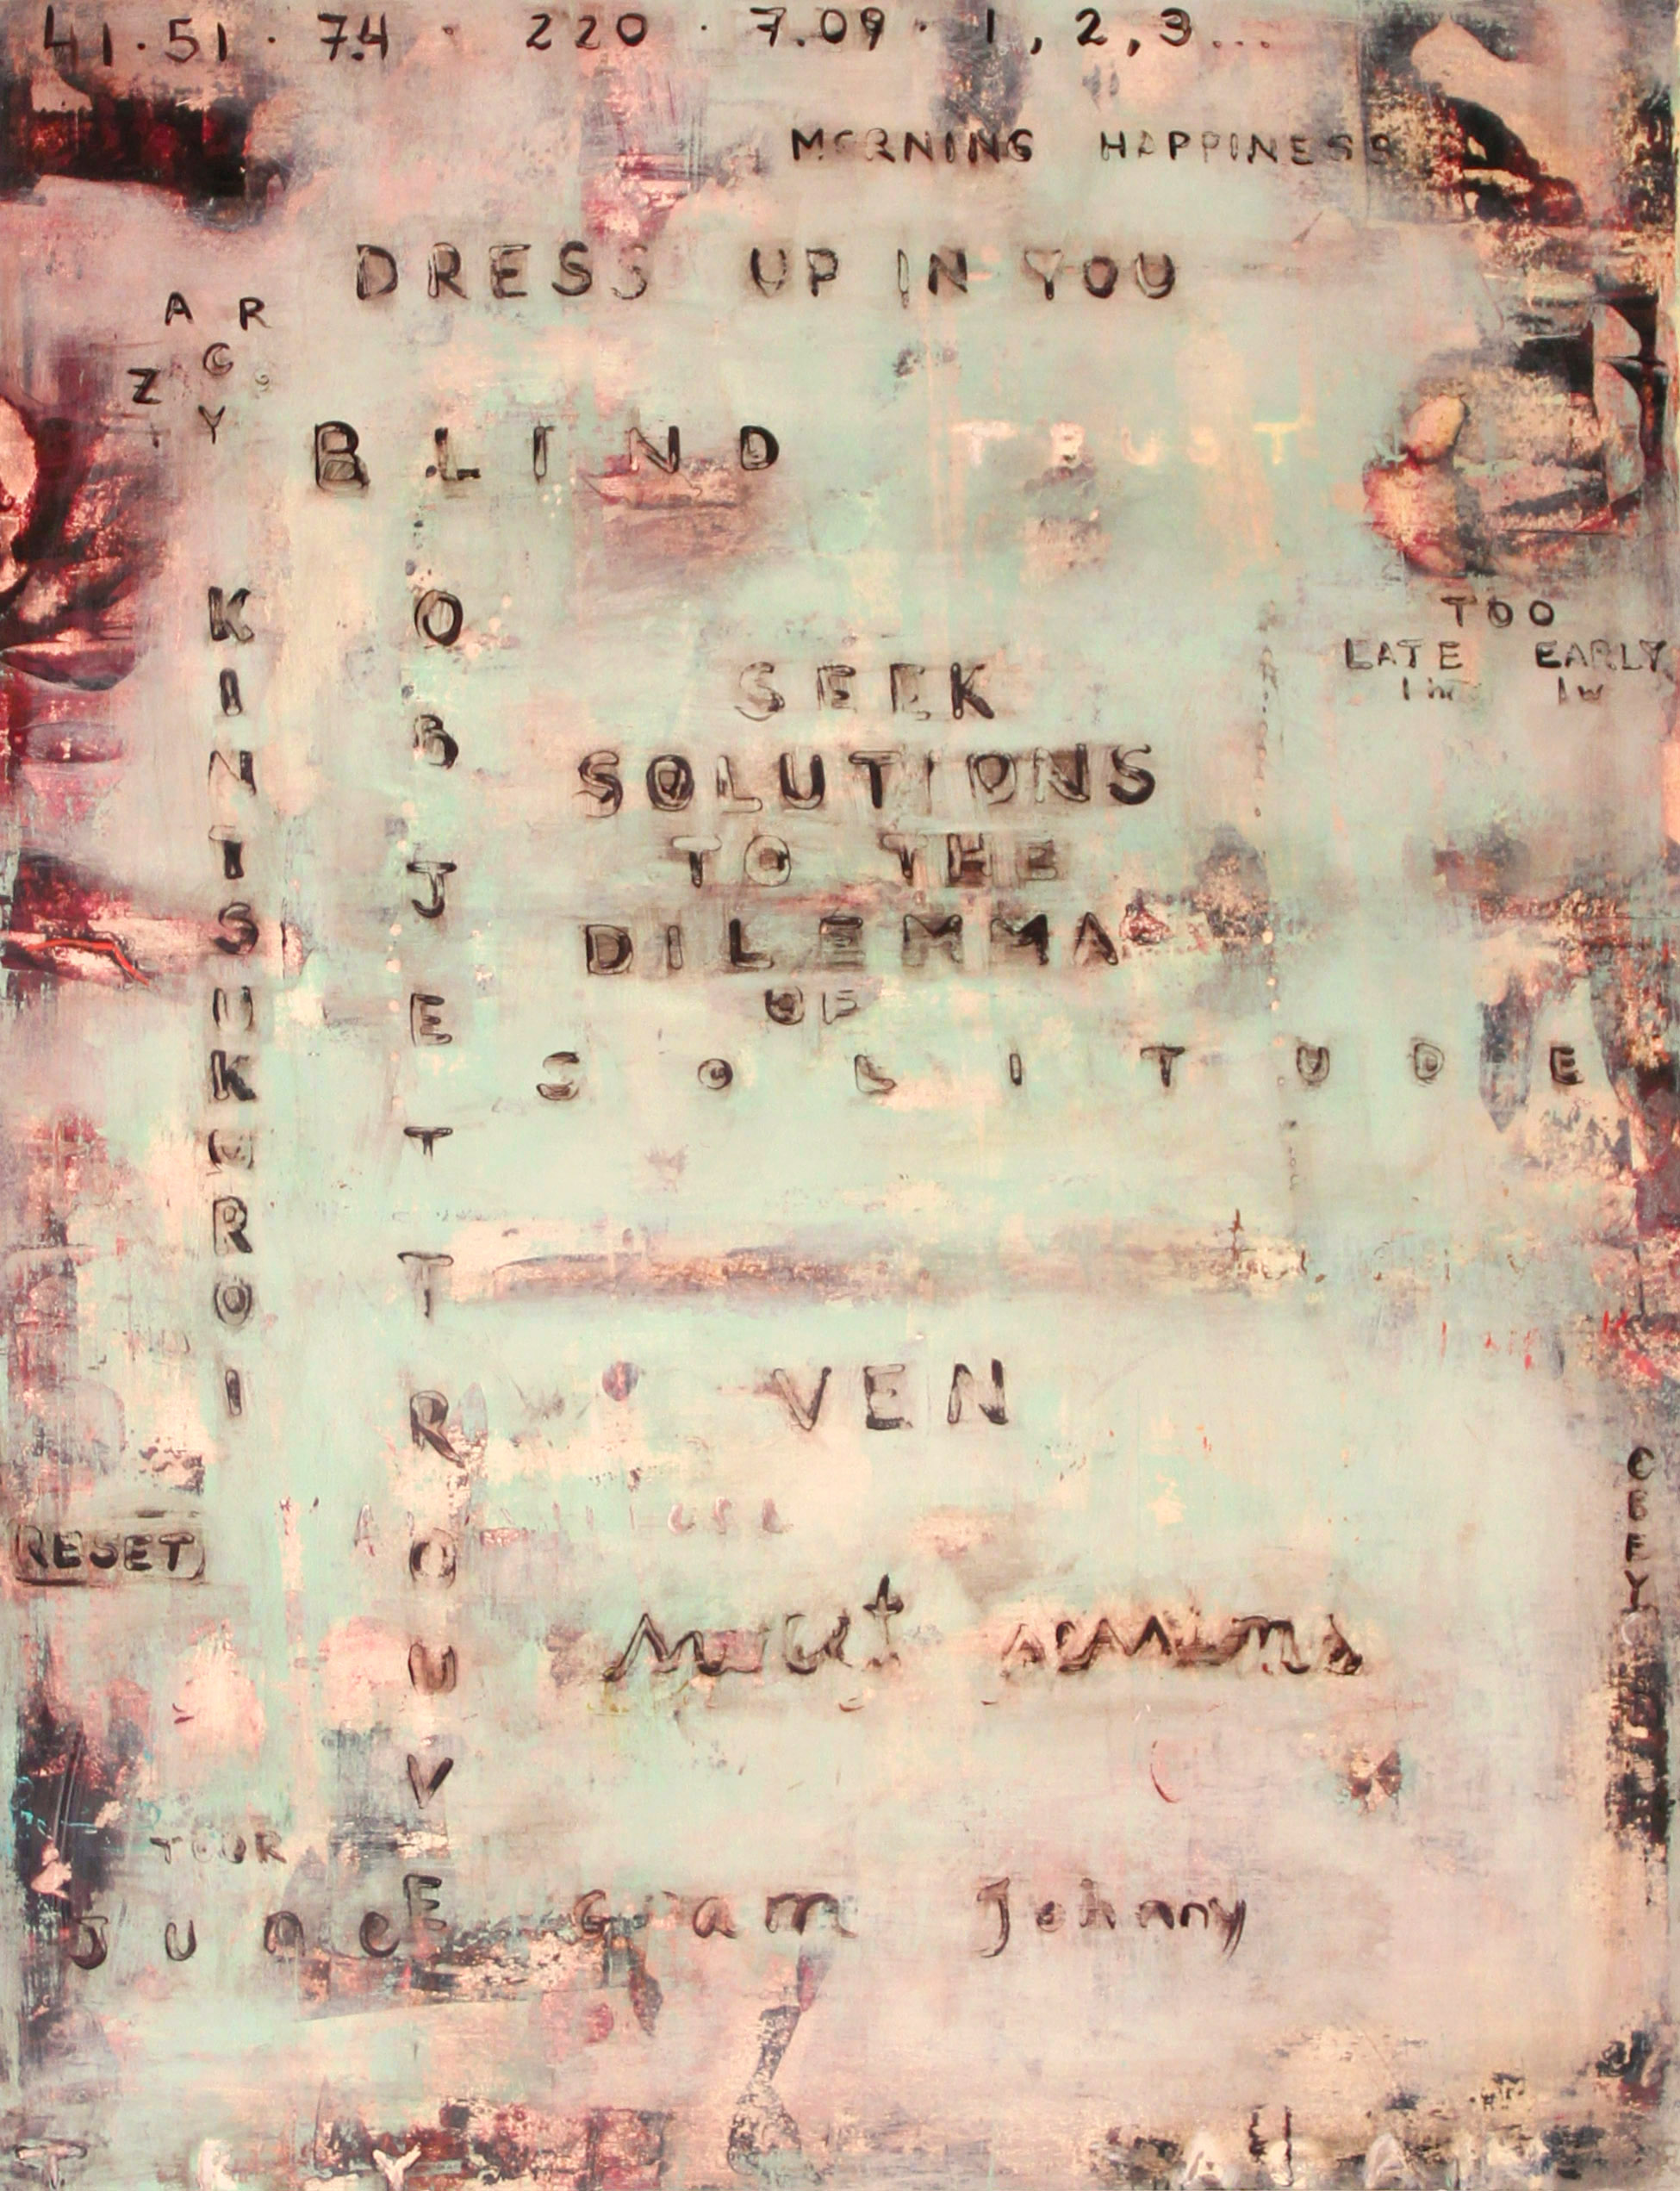 41 · 51 · 74 · 220 · 7.09 · 1, 2, 3...
MORNING HAPPINESS
DRESS UP IN YOU
A R
G
Z
Y
BLIND TRUST
KINTSUKUROI
OBJET TROUVE
TOO
LATE EARLY
SEEK
SOLUTIONS
TO THE
DILEMMA
OF
SOLITUDE
VEN
OBEY
RESET
must
YOUR
June Gram Johnny
TRY AGAIN